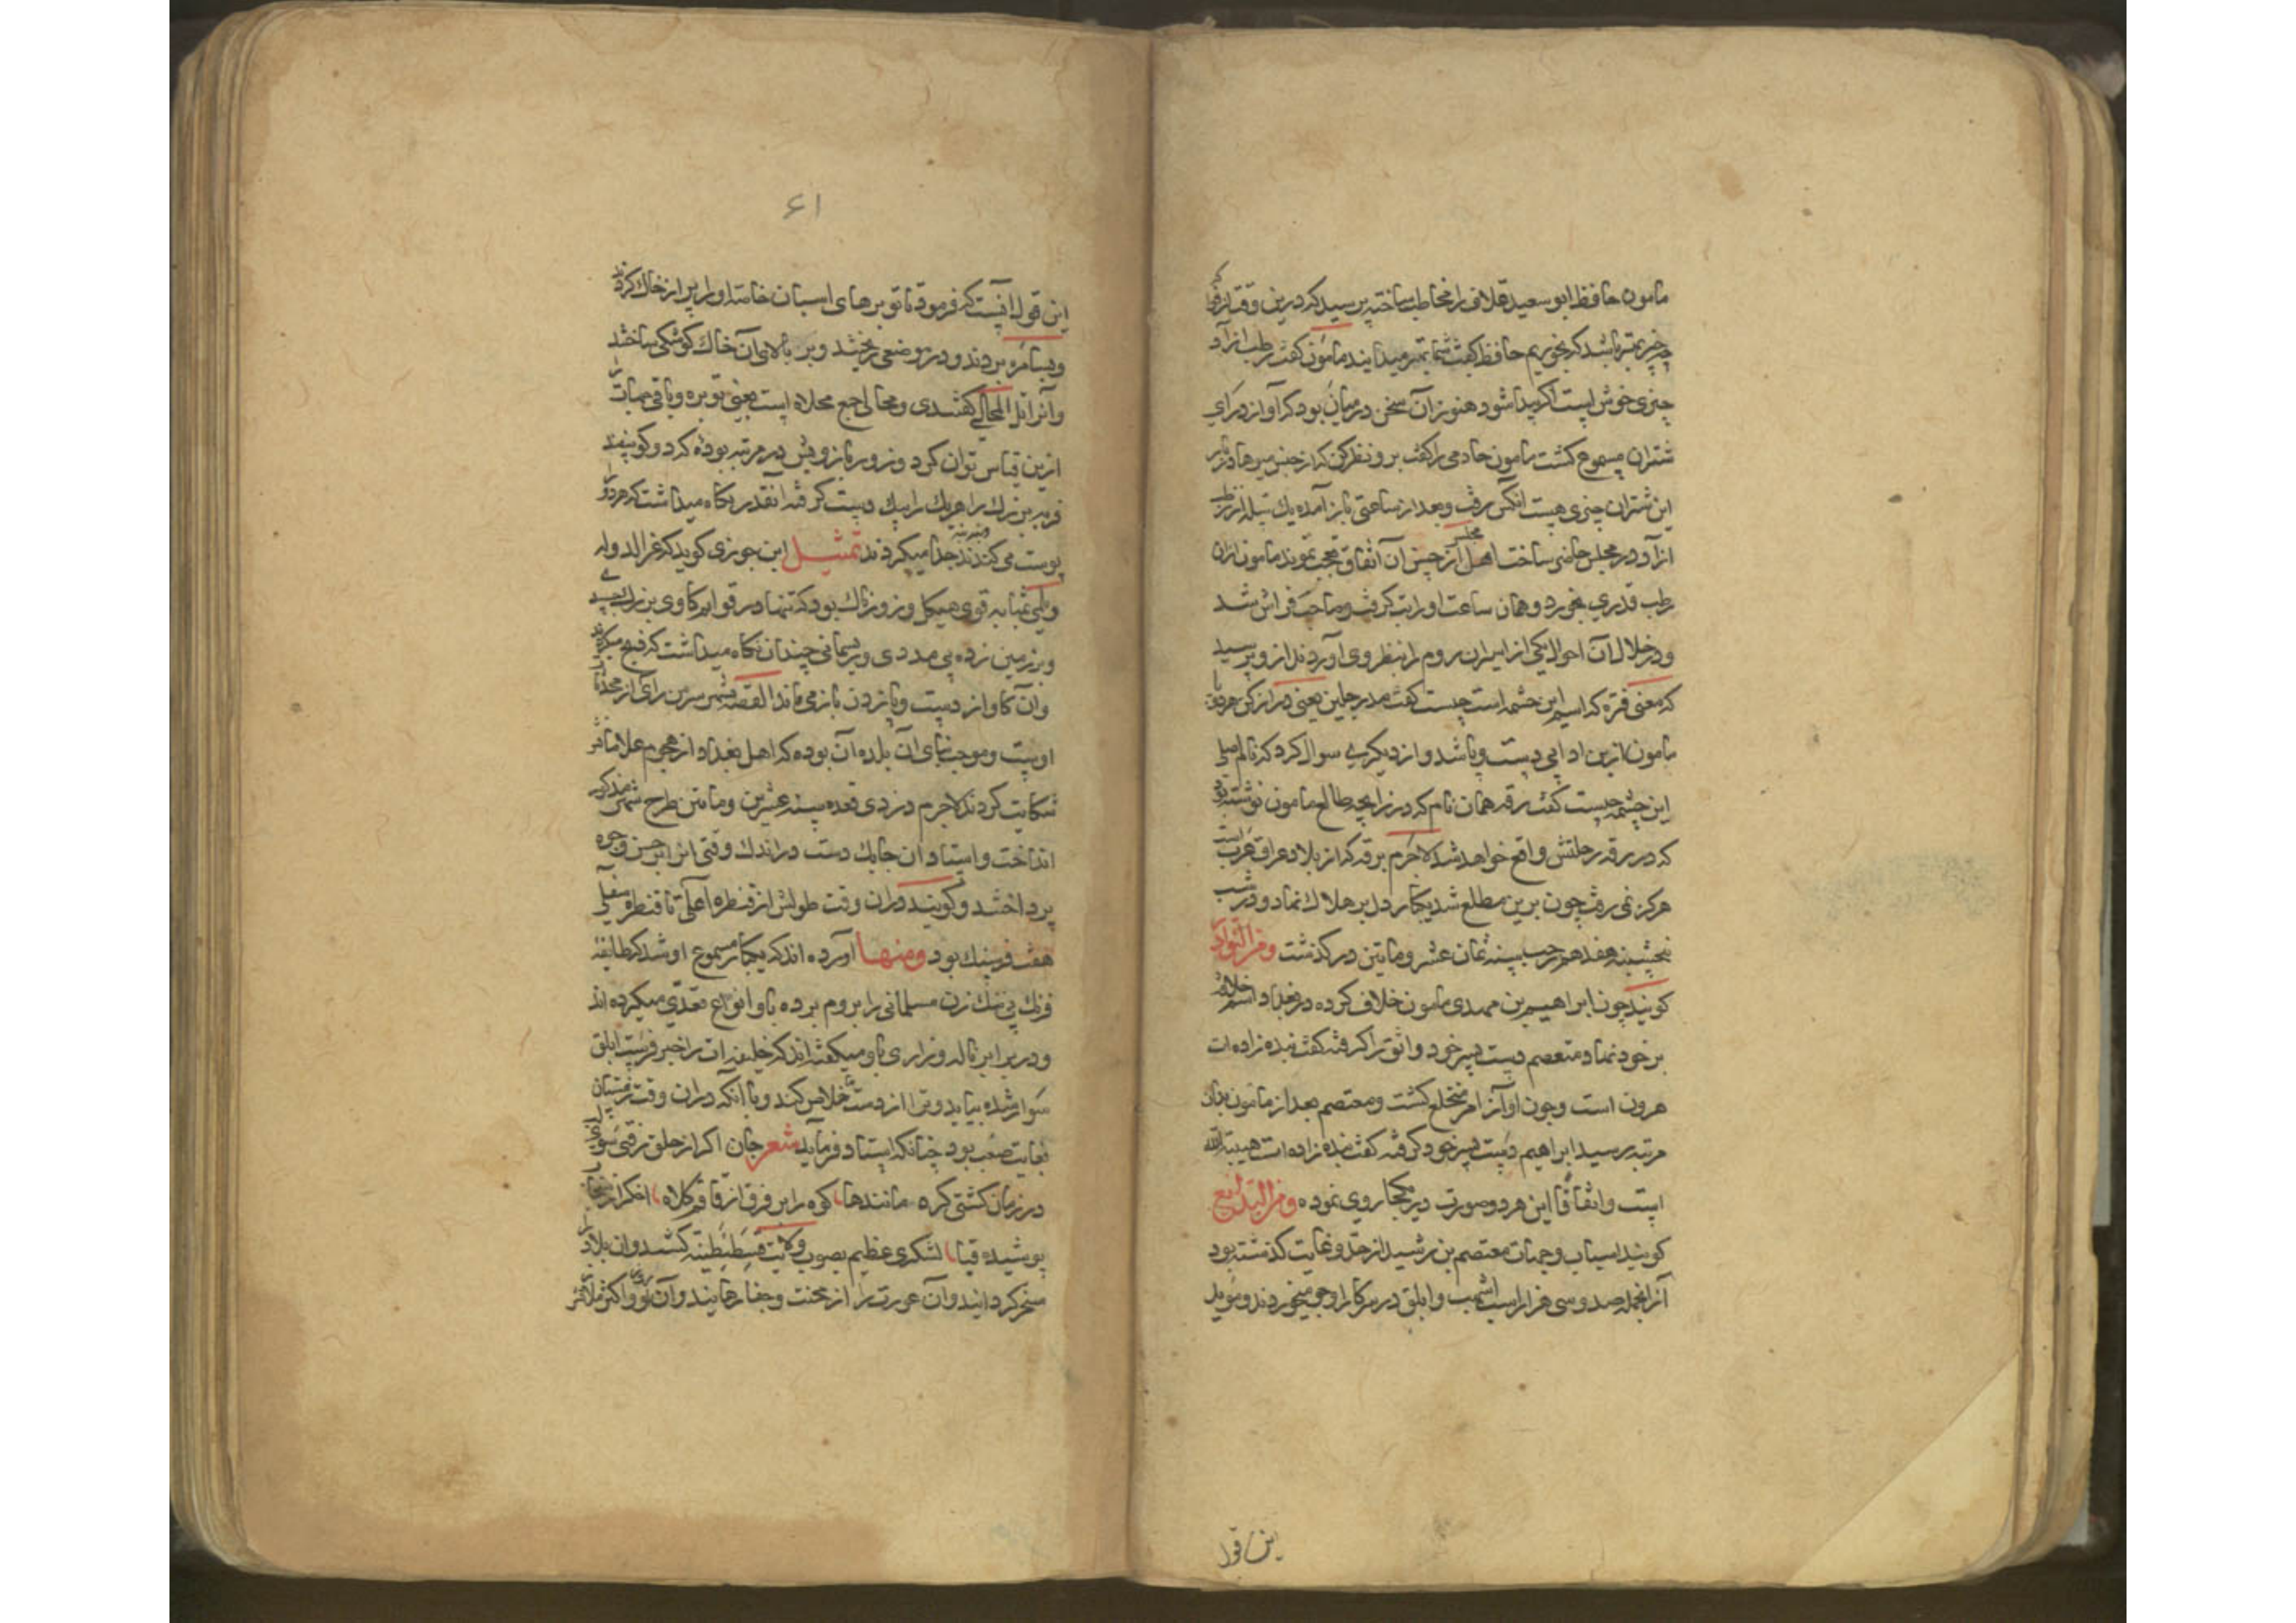 مامون حافظ ابو سعید قلانی را مخاطب ساخته پرسید که درین وقت از
چیز بهتر باشد که بخوریم حافظ گفت شما بهتر میدانید مامون گفت رطب ازاد
چیزی خوش است اگر پیدا شود هنوز آن سخن در میان بود که آواز درای
شتران مسموع گشت مامون خادمی را گفت برو نظر کن که از جنس میوها در بار
این شتران چیزی هست آنکس برفت و بعد از ساعتی باز آمده یک سله از رطب
ازاد در مجلس حاضر ساخت اهل مجلس از حسن آن اتفاق تعجب نمودند مامون ازان
رطب قدری بخورد و همان ساعت او را تب گرفت و صاحب فراش شد
و در خلال آن احوال یکی از اسیران روم را بنظر وی آوردند از و پرسید
که معنی فتره که اسم این چشمه است چیست گفت مد رجلین یعنی دراز کن هر دو پا
مامون ازین ادا بی دست و پا شد و از دیگری سوال کرد که نام اصلی
این چشمه چیست گفت رقه همان نام که در زایچه طالع مامون نوشته بود
که در رقه رحلتش واقع خواهد شد لاجرم برقه که از بلاد عراق عرب است
هرگز نمی رفت چون برین مطلع شد یکبار دل بر هلاک نهاد و در شب
پنجشنبه هفدهم رجب سنه ثمان عشر و ماتین در گذشت و من النوادر
گویند چون ابراهیم بن مهدی با مون خلاف کرده در بغداد اسم خلافت
بر خود نهاد معتصم دست پسر خود واثق را گرفته گفت بنده زاده ات
هرون است و چون او از امر منخلع گشت و معتصم بعد از مامون بدان
مرتبه رسید ابراهیم دست پسر خود گرفته گفت بنده زاده ات هیبة الله
است و اتفاقا این هر دو صورت در یکجا روی نموده و من البدایع
گویند اسباب و جهات معتصم بن رشید از حد و غایت گذشته بود
از انجمله صد و سی هزار اسب اشهب و ابلق در سرکار او جو میخوردند و موید
این قول
۶۱
این قول آنست که فرمود تا توبرهای اسبان خاصه او را پر از خاک کردند
و بسامره بردند و در موضعی ریختند و بر بالای آن خاک کوشکی ساختند
و آنرا تل المخالی گفتندی و مخالی جمع مخلاة است یعنی توبره و باقی مهمات را
ازین قیاس توان کرد و زور بازویش در مرتبه بوده که دو گوسپند
فربه بزرگ را هر یک را بیک دست گرفته آنقدر نگاه میداشت که هر دو را
پوست می کندند جدا میکردند تمثیل ابن جوزی گوید که عز الدوله
دیلمی بمثابه قوی هیکل و زورناک بود که تنها در قوایم گاوی بزرگ
و بر زمین زده بی مددی و ریسمانی چندان نگاه میداشت که ذبح میکردند
و آن گاو از دست و پا زدن باز می ماند القصه شهر سر من رای از محدثات
اوست و موجب بنای آن بلده آن بوده که اهل بغداد از هجوم غلامانش
شکایت کردند لاجرم در ذی قعده سنه عشرین و ماتین طرح شهر مذکور
انداخت و استادان چابک دست در اندک وقتی انرا بر احسن وجوه
پرداختند و گویند دران وقت طولش از قنطره اعلی تا قنطره سفلی
هفت فرسنگ بود و منها آورده اند که یکبار مسموع او شد که طایفه
فرنگ بی ننگ زن مسلمانی را بروم برده باو انواع تعدی میکرده اند
و در برابر ناله و زاری باو میگفته اند که خلیفه ات را خبر فرست ابلق
سوار شده بیاید و ترا از دست ما خلاص کند و با آنکه دران وقت زمستان
بغایت صعب بود چنانکه استاد فرماید شعر جان اگر از حلق نرفتی سوی
در زمان گشتی گره مانند ها کوه را بر فرق از قاقم کلاه اخگر از سنجاب
پوشیده قبا لشکری عظیم بصوب ولایت قسطنطینه کشید و ان بلاد را
مسخر گردانید و آن عورت را از محنت و جفا رهانید و آن روز اکثر ملازمانش